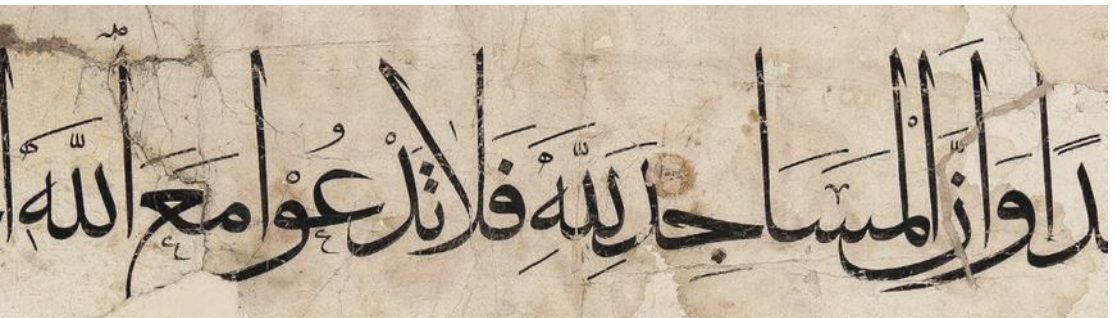 دًا وَأَنَّ الْمَسَاجِدَ لِلَّهِ فَلَا تَدْعُوا مَعَ اللَّهِ